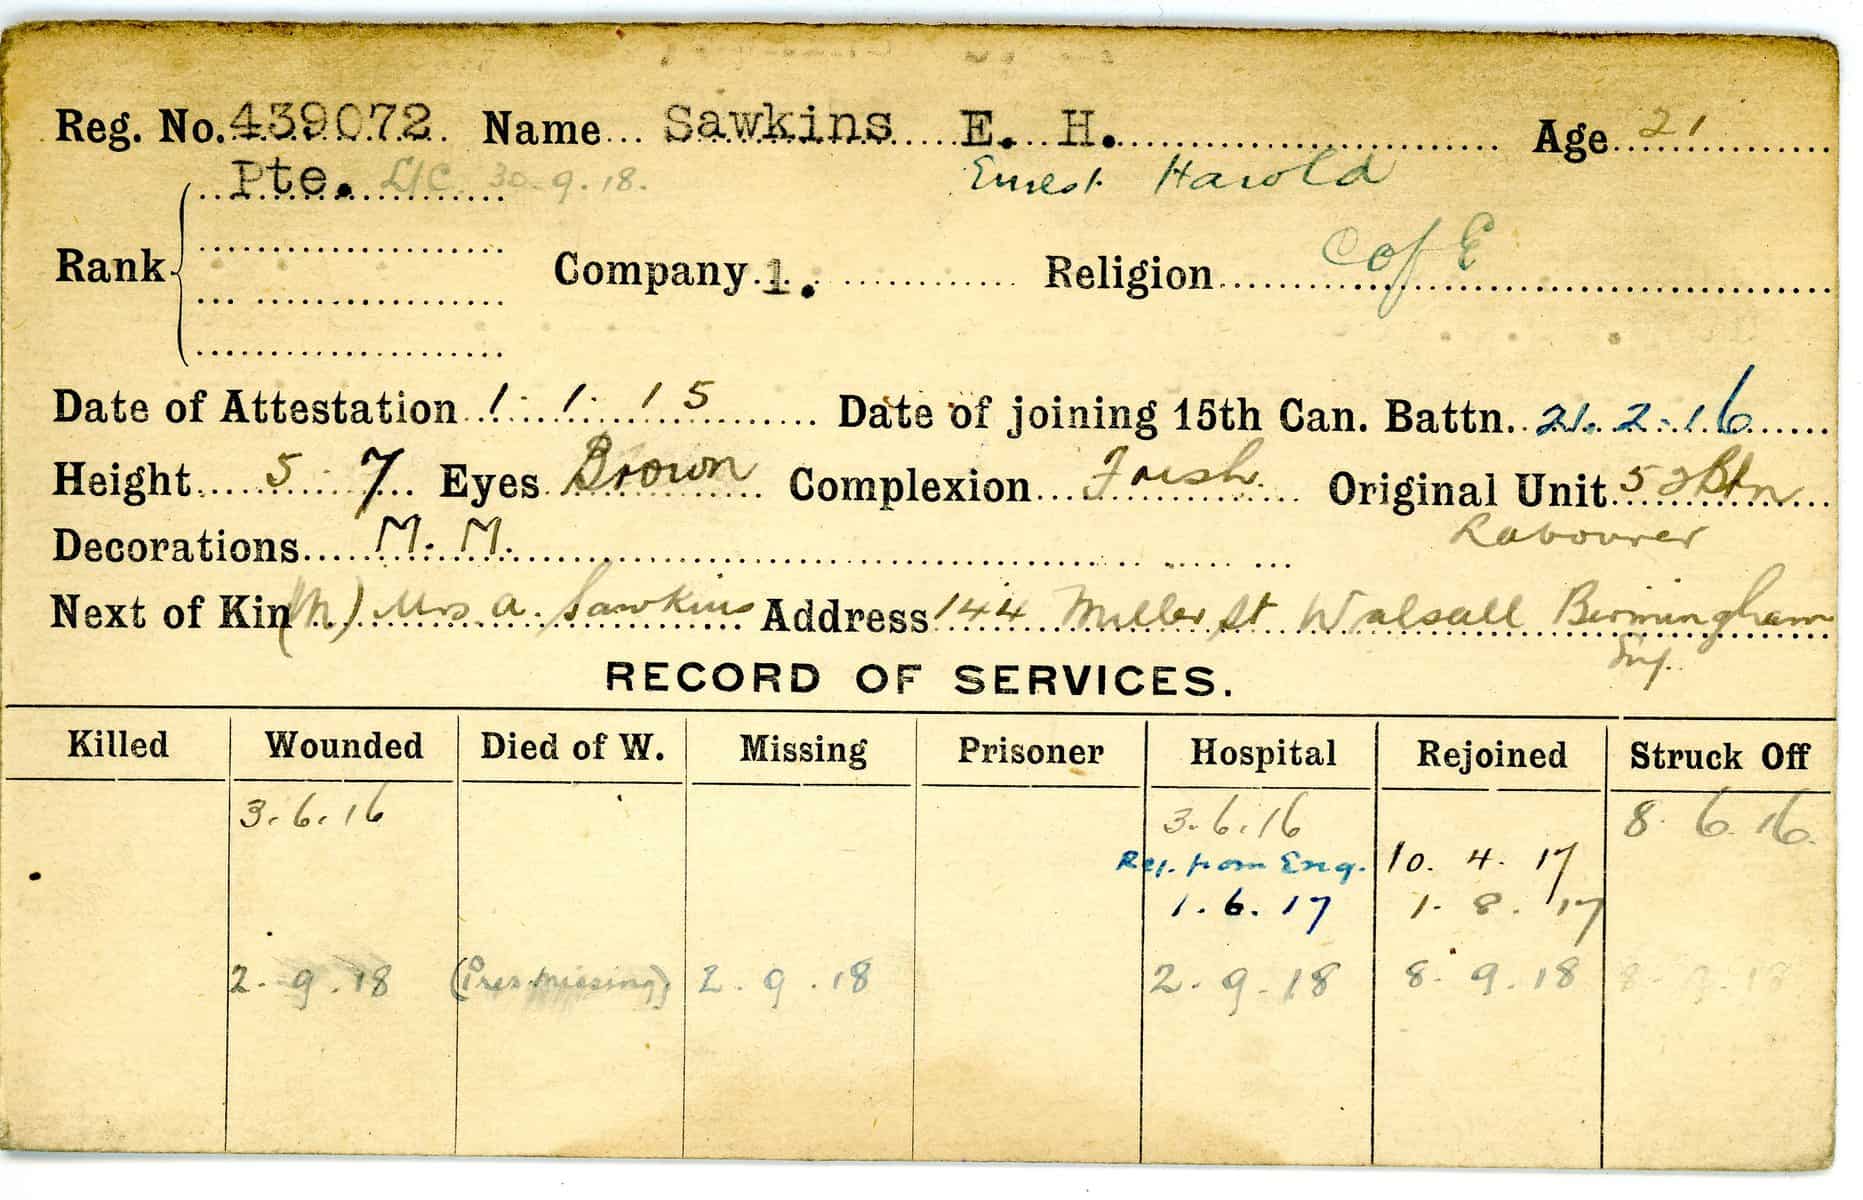 Reg. No. 439072 Name Sawkins E. H. Age 21
Pte. L/C 30-9-18. Ernest Harold
Rank Company 1. Religion C of E
Date of Attestation 1-1-15 Date of joining 15th Can. Battn. 21.2.16
Height 5 7 Eyes Brown Complexion Fresh Original Unit 52 Btn
Decorations M. M. Labourer
Next of Kin (M) Mrs A. Sawkins Address 144 Miller St Walsall Birmingham
Eng.
RECORD OF SERVICES.
Killed Wounded Died of W. Missing Prisoner Hospital Rejoined Struck Off
3.6.16 3.6.16 8.6.16.
Rej. from Eng. 10.4.17
1.6.17 1.8.17
2.9.18 (Prev missing) 2.9.18 2.9.18 8.9.18 8.9.18